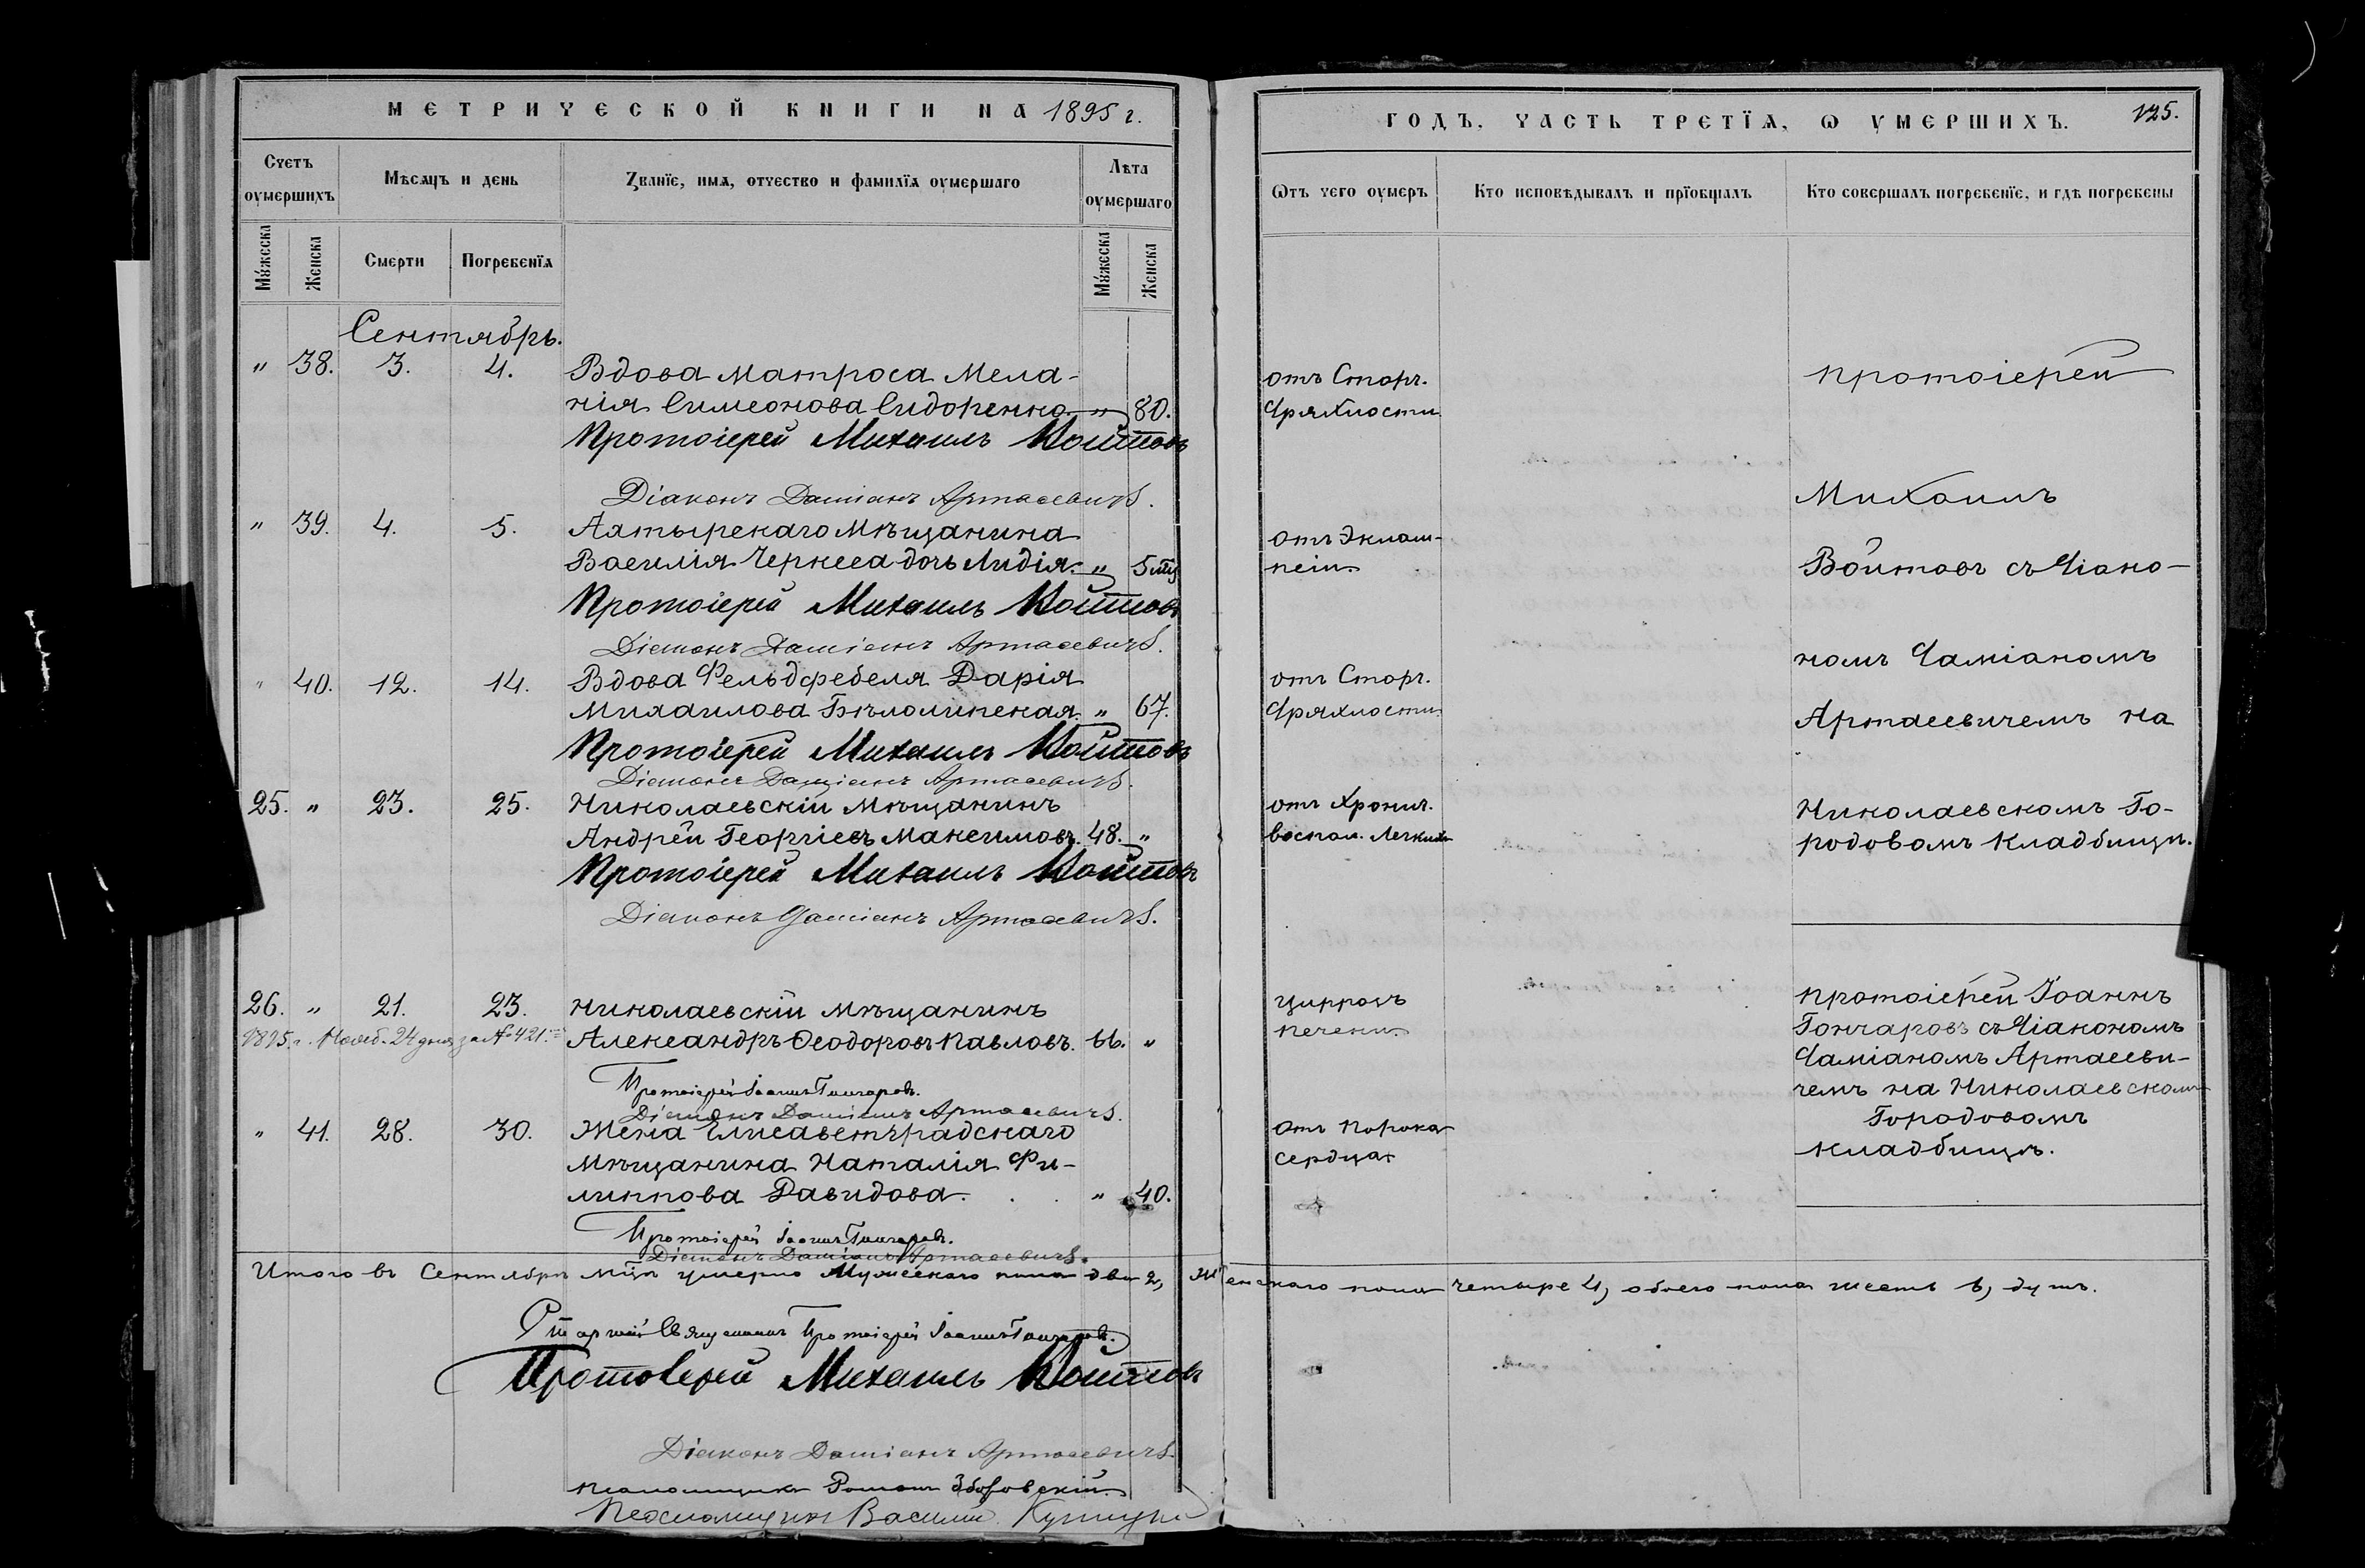 МЕТРИЧЕСКОЙ КНИГИ НА 1895 г.
Счетъ оумершихъ
Мѣсяцъ и день
Званїе, имя, отчество и фамилїя оумершаго
Лѣта оумершаго
Мꙋжеска
Женска
Смерти
Погребенїя
Мꙋжеска
Женска
Сентябрь.
" 38. 3. 4. Вдова матроса Мела-
нія Симеонова Сидоренко " 80.
Протоіерей Михаилъ Войтовъ
Діаконъ Даміанъ Артасевичъ.
" 39. 4. 5. Ахтырскаго мѣщанина
Василія Черкеса дочь Лидія. " 5 мц
Протоіерей Михаилъ Войтовъ
Діаконъ Даміанъ Артасевичъ.
" 40. 12. 14. Вдова Фельдфебеля Дарія
Михаилова Бѣлолипская. " 67.
Протоіерей Михаилъ Войтовъ
Діаконъ Даміанъ Артасевичъ.
25. " 23. 25. Николаевскій мѣщанинъ
Андрей Георгіевъ Максимовъ. 48. "
Протоіерей Михаилъ Войтовъ
Діаконъ Даміанъ Артасевичъ.
26. " 21. 23. Николаевскій мѣщанинъ
1895 г. Нояб. 24 дня за № 421. Александръ Ѳеодоровъ Павловъ. 66. "
Протоіерей Іоаннъ Гончаровъ.
Діаконъ Даміанъ Артасевичъ.
" 41. 28. 30. Жена Елисаветградскаго
мѣщанина Наталія Фи-
липпова Давидова. " 40.
Протоіерей Іоаннъ Гончаровъ.
Діаконъ Даміанъ Артасевичъ.
Итого въ Сентябрѣ мцѣ умерло Мужескаго пола два 2, Женскаго пола четыре 4, обоего пола шесть 6, душъ.
Протоіерей Іоаннъ Гончаровъ.
Протоіерей Михаилъ Войтовъ
Діаконъ Даміанъ Артасевичъ.
Псаломщикъ Романъ Зборовскій.
Псаломщикъ Василій
ГОДЪ, ЧАСТЬ ТРЕТЇЯ, Ѡ ОУМЕРШИХЪ. 125.
Ѿтъ чего оумеръ
Кто исповѣдывалъ и прїобщалъ
Кто совершалъ погребенїе, и гдѣ погребены
отъ Старч.
Дряхлости
отъ Эклам-
псіи.
отъ Старч.
Дряхлости.
отъ Хронич.
воспал. Легкихъ
Циррозъ
печени.
Отъ порока
сердца
протоіерей
Михаилъ
Войтовъ съ Діако-
номъ Даміаномъ
Артасевичемъ на
Николаевскомъ Го-
родовомъ Кладбищѣ.
протоіерей Іоаннъ
Гончаровъ съ Діакономъ
Даміаномъ Артасеви-
чемъ на Николаевскомъ
Городовомъ
кладбищѣ.